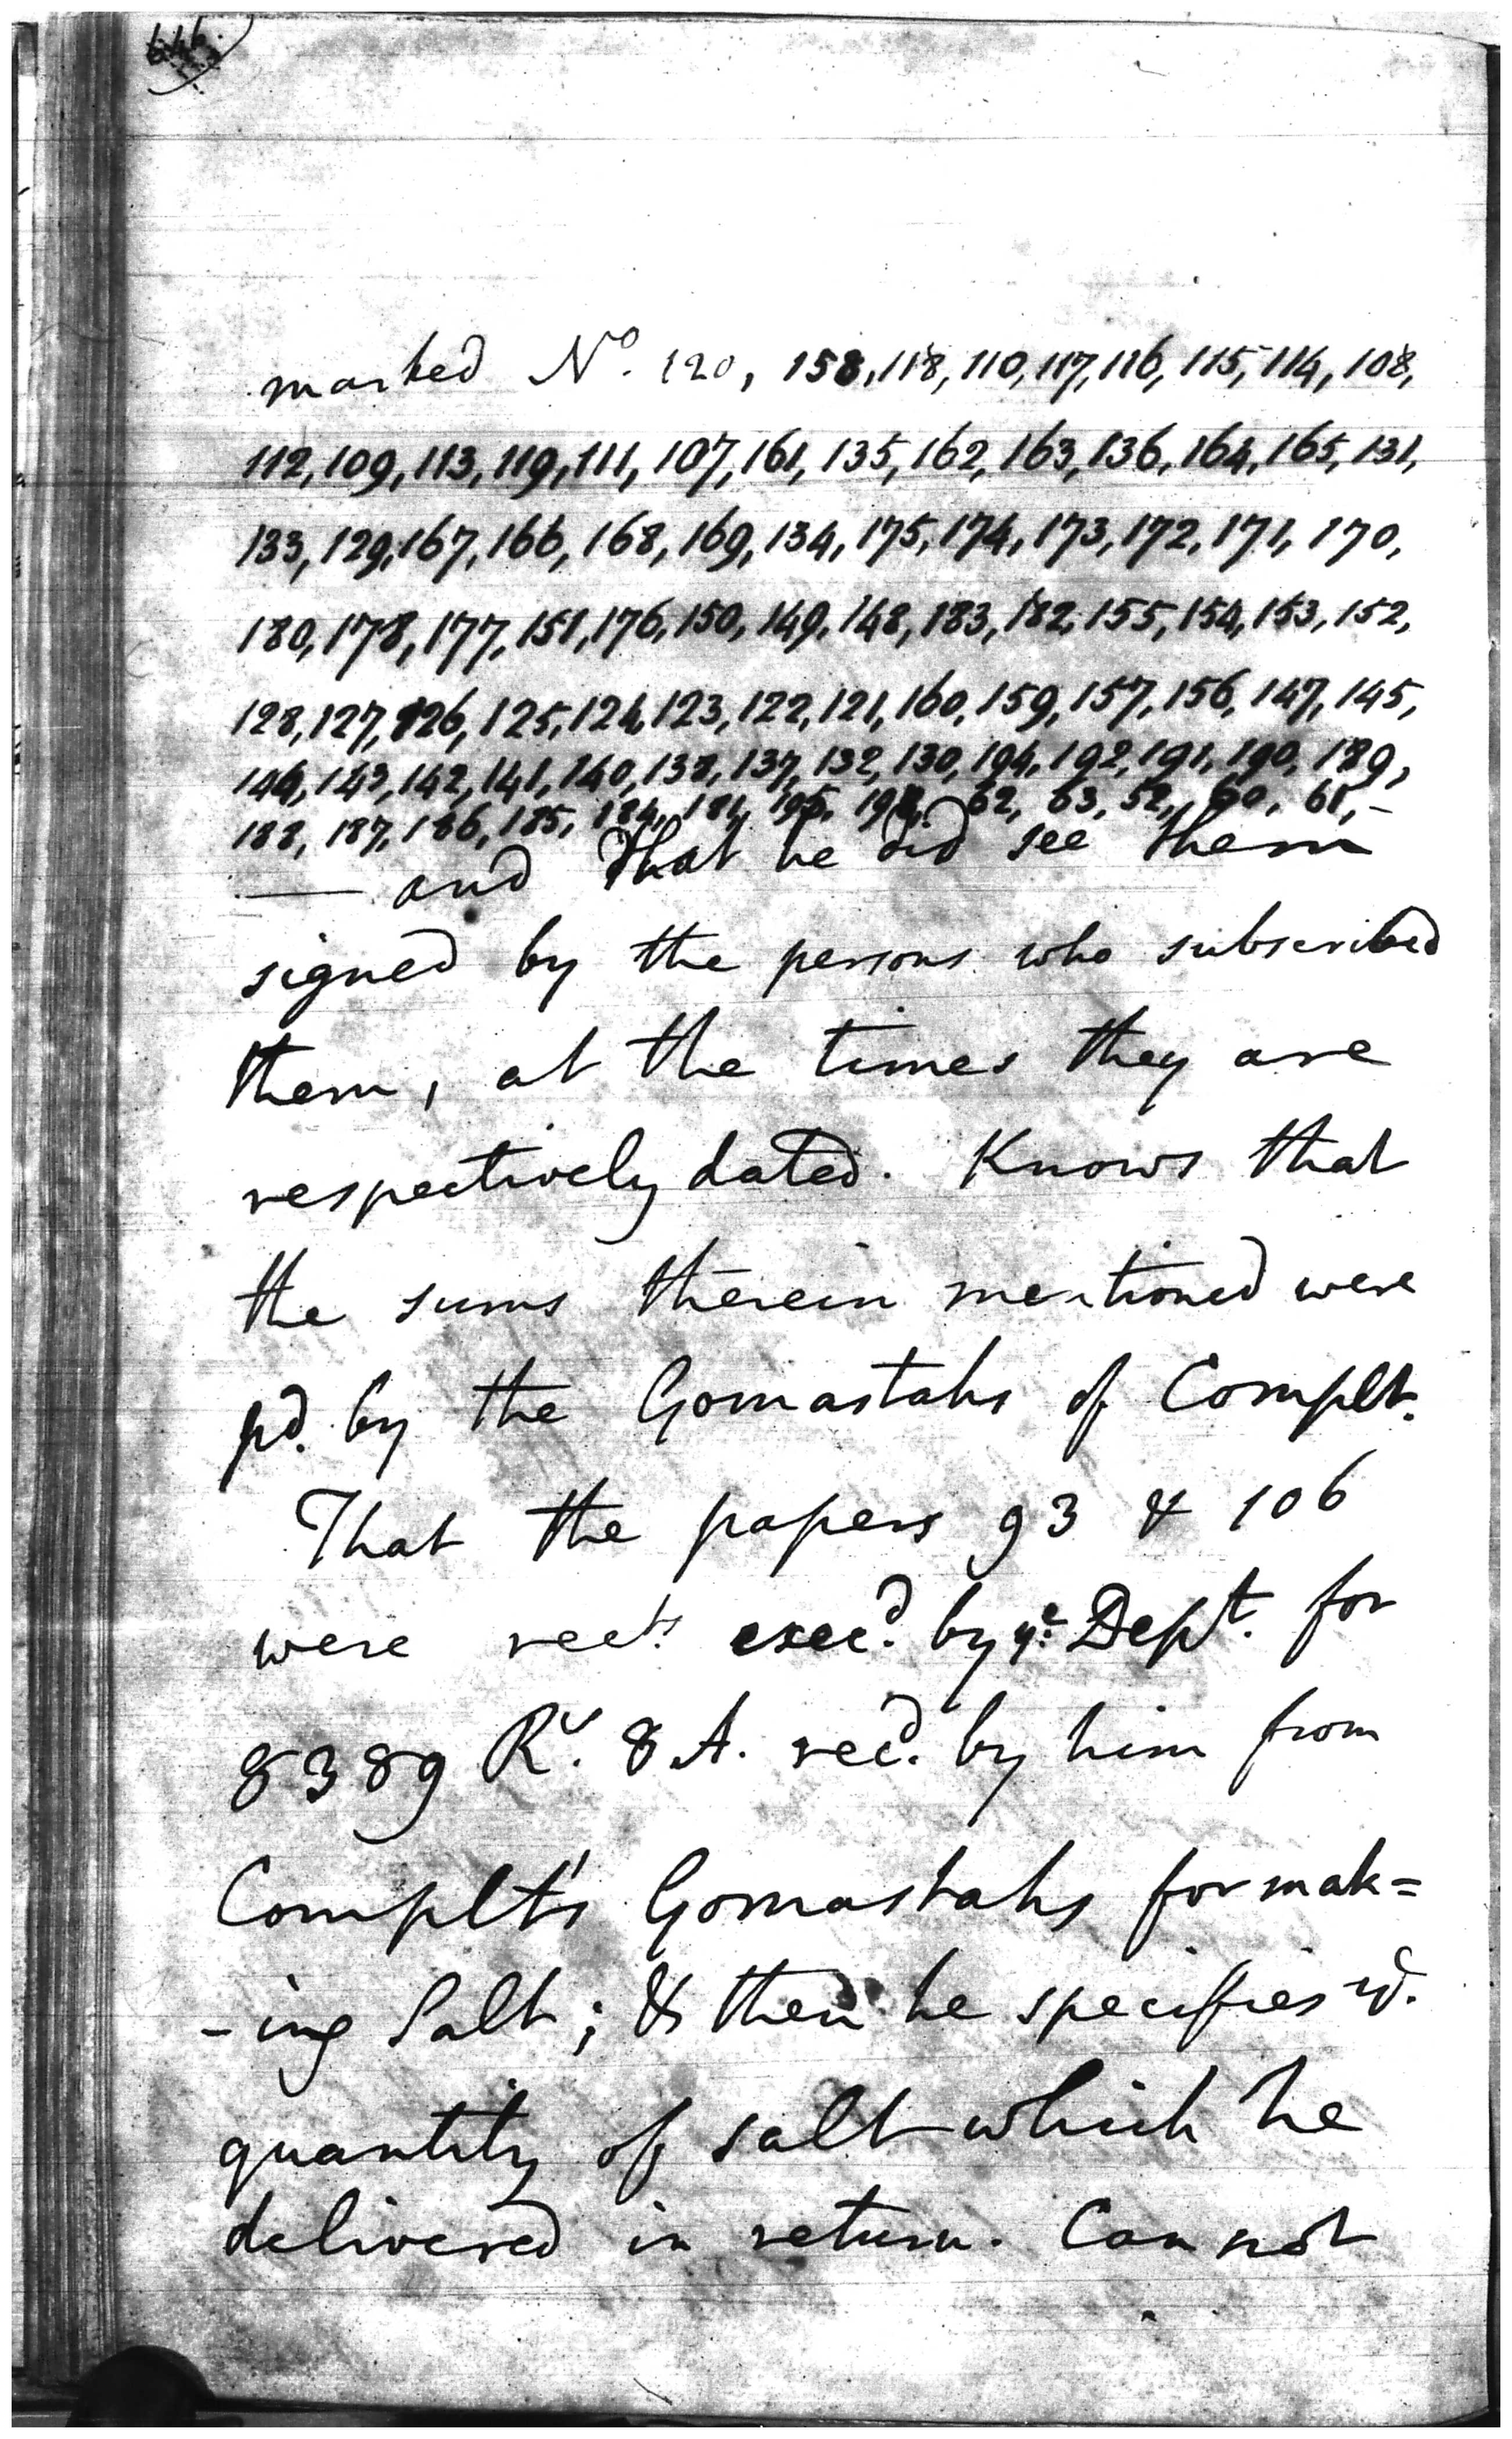 646.
marked No. 120, 158, 118, 110, 117, 116, 115, 114, 108,
112, 109, 113, 119, 111, 107, 161, 135, 162, 163, 136, 164, 165, 131,
133, 129, 167, 166, 168, 169, 134, 175, 174, 173, 172, 171, 170,
180, 178, 177, 151, 176, 150, 149, 148, 183, 182, 155, 154, 153, 152,
128, 127, 126, 125, 124, 123, 122, 121, 160, 159, 157, 156, 147, 145,
144, 143, 142, 141, 140, 138, 137, 132, 130, 194, 192, 191, 190, 189,
188, 187, 186, 185, 184, 181, 195, 62, 63, 52, 60, 61, –
— and that he did see them
signed by the persons who subscribed
them, at the times they are
respectively dated. Knows that
the sums therein mentioned were
pd. by the Gomastahs of Complt.
That the papers 93 & 106
were rects. execd. by ye. Dept. for
8389 Rs. 8 A. recd. by him from
Complt's Gomastahs for mak=
-ing Salt; & then he specifies
quantity of salt which he
delivered in return. Can not